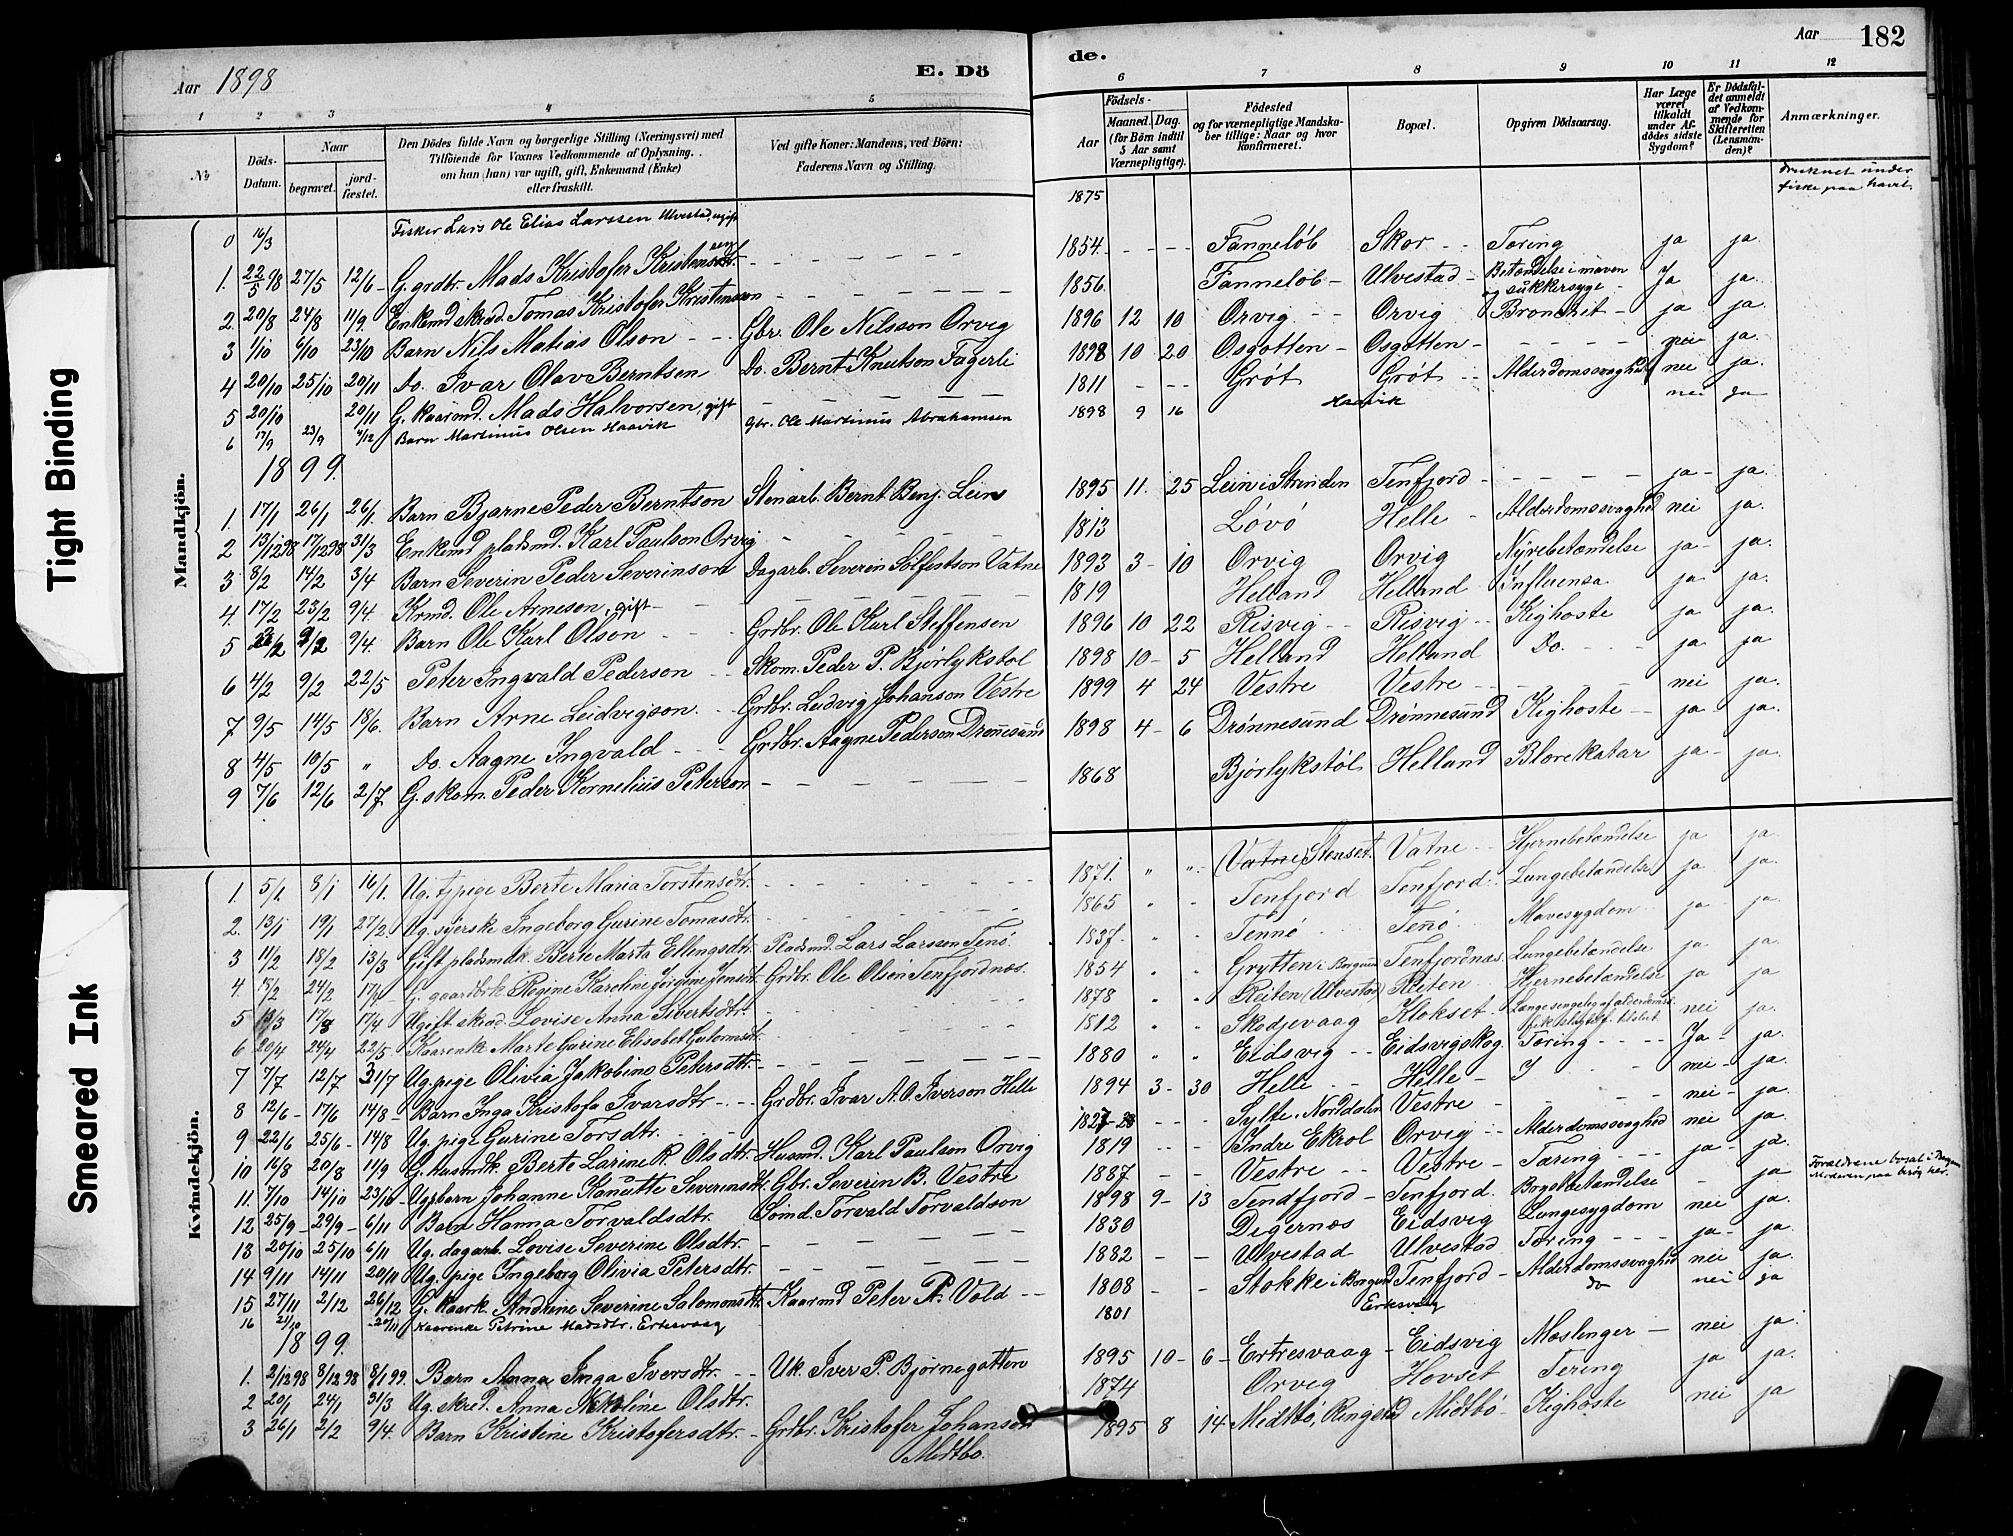 Tight Binding
Smeared Ink
Aar 1898
E. Dö
de.
Aar
182
1 2 3 4 5 6 7 8 9 10 11 12
No
Döds-Datum.
Naar
begravet.
jord-fæstet.
Den Dödes fulde Navn og borgerlige Stilling (Næringsvei) med
Tilföiende for Voxnes Vedkommende af Oplysning,
om han (hun) var ugift, gift, Enkemand (Enke)
eller fraskilt.
Ved gifte Koner: Mandens, ved Börn:
Faderens Navn og Stilling.
Födsels-
Aar
Maaned. Dag.
(for Börn indtil
5 Aar samt
Værnepligtige).
Födested
og for værnepligtige Mandska-
ber tillige: Naar og hvor
konfirmeret.
Bopæl.
Opgiven Dödsaarsag.
Har Læge
været
tilkaldt
under Af-
dödes sidste
Sygdom?
Er Dödsfal-
det anmeldt
af Vedkom-
mende for
Skifteretten
(Lensman-
den)?
Anmærkninger.
Mandkjön.
0 16/3 Fisker Lars Ole Elias Larssen Ulvestad, ugift 1875 druknet under fiske paa havet
1. 22/5 98 27/5 12/6 G. grdbr. Mads Kristofer Kristensen 1854 Fanneløb Skor Tæring ja ja
2. 20/8 24/8 11/9. Enkemd skræd. Tomas Kristofer Kristensson 1856 Fanneløb Ulvestad Betændelse i maven og sukkersyge Ja ja.
3 1/10 6/10 23/10 Barn Nils Matias Olson Gbr. Ole Nilsson Orvig 1896 12 10 Orvig Orvig Bronchit ja ja.
4 20/10 25/10 20/11 Do. Ivar Olav Berntsen Do. Bernt Knutson Fagerli 1898 10 20 Osgotten Osgotten nei ja.
5 20/10 20/11 G. kaarmd. Mads Halvorsen, gift 1811 Grøt Grøt Alderdomssvaghed nei ja.
6 17/9 23/9 4/12 Barn Martinus Olsen Haavik Gbr. Ole Martinus Abrahamsen 1898 9 16 Haavik nei ja
1899.
1. 17/1 26/1 26/1. Barn Bjarne Peder Berntson Stenarb. Bernt Benj. Lein 1895 11. 25 Lein i Strinden Tenfjord ja ja.
2 13/12 98 17/12 98 31/3 Enkemd pladsmd. Karl Paulson Orvig 1813 Løvø Helle Alderdomssvaghed nei ja.
3 8/2 14/2 3/4 Barn Severin Peder Severinson Dagarb. Severin Solfestson Vatne 1893 3 10 Orvig Orvig Nyrebetændelse ja ja.
4. 17/2 23/2 9/4. Krmd. Ole Arneson, gift 1819 Helland Helland Influensa ja ja.
5 9/2 9/4. Barn Ole Karl Olson Grdbr. Ole Karl Steffenson 1896 10 22 Risvig Risvig Kighoste ja ja.
6 4/2 9/2 22/5 Peter Ingvald Pederson Skom. Peder P. Bjørlykstøl 1898 10 5 Helland Helland Do. ja ja
7 9/5 14/5 18/6. Barn Arne Leidvigson Grdbr. Leidvig Johanson Vestre 1899 4 24 Vestre Vestre nei ja.
8 4/5 10/5 " Do. Aagne Ingvald Grdbr. Aagne Pederson Drønnesund 1898 4 6 Drønnesund Drønnesund Kighoste ja ja.
9 7/6 12/6 2/7 G. skom. Peder Kornelius Peterson 1868 Bjørlykstøl Helland Blærekatar ja ja
Kvindekjön.
1. 5/1 8/1 16/1. Ug. tjpige Berte Maria Torstensdtr. 1871. " " (Vatne) Stenset. Vatne Hjernebetændelse ja ja.
2. 13/1 19/1 27/2. Ug. syerske Ingeborg Gurine Tomasdtr. 1865 " " Tenfjord Tenfjord Lungebetændelse ja ja.
3 11/2 18/2 13/3 Gift pladsmdk. Berte Marta Ellingsdtr. Pladsmd. Lars Larsson Tenø. 1837 " " Tennø Tenø Mavesygdom ja ja.
4. 15/2 24/2 17/4 G. gaardbrk Regine Karoline Jørgine Jensdtr. Grdbr. Ole Olsen Tenfjordnæs. 1854 " " Grytten i Borgund Tenfjordnæs. Lungebetændelse ja ja.
5 17/3 17/4 Ugift skræd. Lovise Anna Sivertsdtr. 1878 " " Reiten (Ulvestad) Reiten Hjernebetændelse ja ja
6 20/4 24/4 22/5 Kaarenke Marte Gurine Elisabet Guttormsdtr. 1812 " " Skodjevaag Klokset nei ja.
7 7/7 12/7 31/7 Ug. pige Olivia Jakobine Petersdtr. 1880 " " Eidsvig Eidsvigskog Tæring Ja ja.
8 12/6 17/6 14/8 Barn Inga Kristofa Ivarsdtr. Grdbr. Ivar A. O. Iverson Helle 1894 3 30 Helle Helle nei ja.
9 22/6 25/6 14/8 Ug. pige Gurine Torsdtr. 1827 Sylte, Norddalen Vestre nei ja.
10 16/8 20/8 11/9 G. husmdk. Berte Larine R. Olsdtr Husmd. Karl Paulson Orvig 1819 Indre Ekrol Orvig Alderdomssvaghed nei ja
11. 7/10 14/10 23/10 Ugbarn Johanne Kanutte Severinsdtr. Gbr. Severin B. Vestre 1887 Vestre Vestre Tæring ja ja.
12 25/9 29/9 6/11 Barn Hanna Torvaldsdtr. Sømd. Torvald Torvaldson 1898 9 13 Tendfjord Tenfjord. Brystbetændelse ja
13 20/10 25/10 6/11 Ug. dagarb. Lovise Severine Olsdtr. 1830 Digernæs Eidsvig Lungesygdom nei ja.
14 9/11 14/11 20/11 Ug. pige Ingeborg Olivia Petersdtr. 1882 Ulvestad Ulvestad Tæring ja ja.
15 27/11 2/12 26/12 G. kaark. Andrine Severine Salomonsdtr. Kaarmd Peter P. Vold 1808 Stokke i Borgund Tenfjord Alderdomssvaghed nei ja.
16 21/10 20/11 Kaarenke Petrine Madsdtr. Erkesvaag 1801 Erksvaag do nei ja
1899.
1. 2/12 98 8/12 98 8/1 99. Barn Anna Inga Iversdtr. Uk. Iver P. Bjørnegotten 1895 10 6 Ertresvaag Eidsvig Meslinger nei ja.
2 20/1 24/1 31/3 Ug. skræd. Anna Nekoline Olsdtr. 1874 Orvig Hovset Tæring ja ja.
3 26/1 2/2 9/4. Barn Kristine Kristofersdtr. Grdbr. Kristofer Johanson Midtbø. 1895 8 14 Midtbø, Ringstad Midtbø Kighoste nei ja